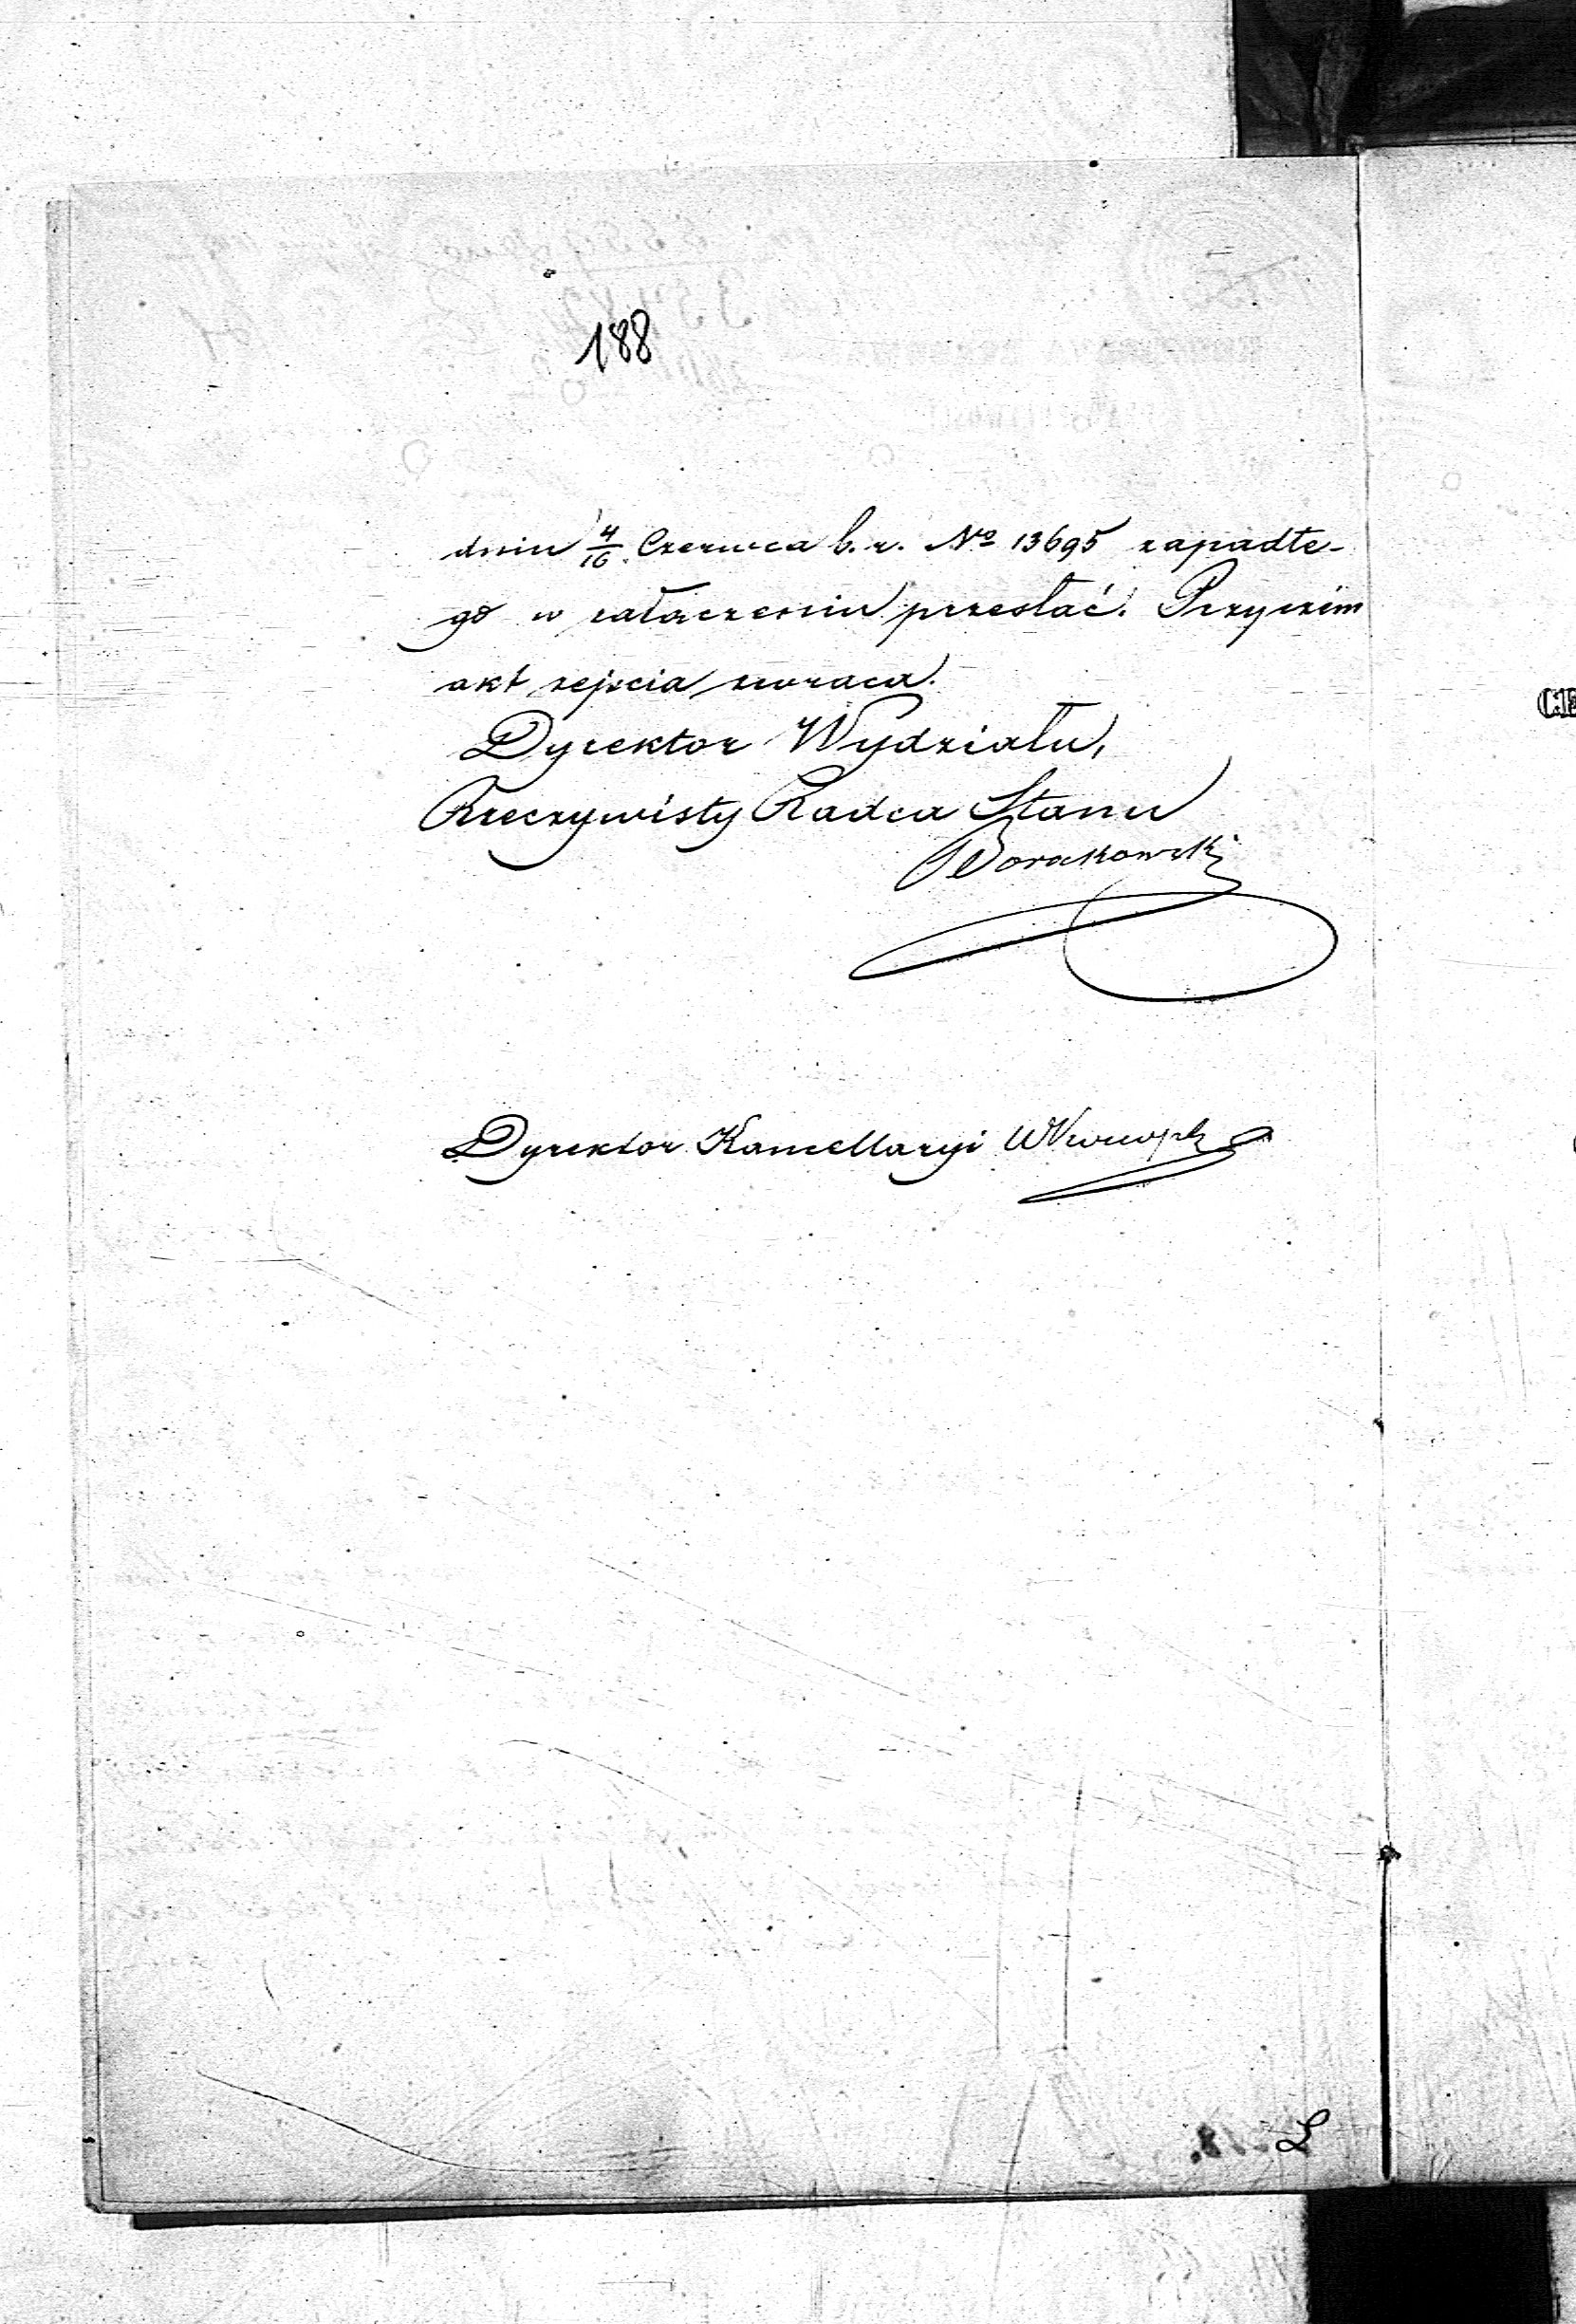 188
dniu 4/16 Czerwca b. r. № 13695 zapadłe-
go w załączeniu przesłać. Przyczém
akt zejścia zwraca.
Dyrektor Wydziału,
Rzeczywisty Radca Stanu
Dyrektor Kancellaryi